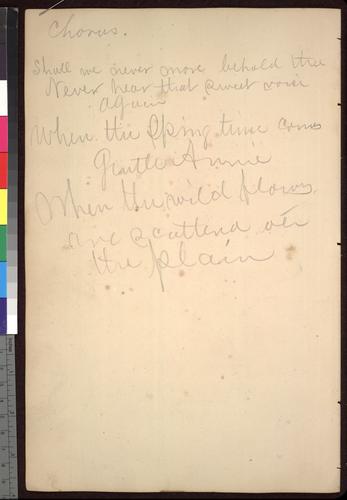 Chorus.
Shall we never more behold thee
Never hear that sweet voice
again
When the Spring time comes
Gentle Annie
When the wild flowrs
are scatterd oer
the plain